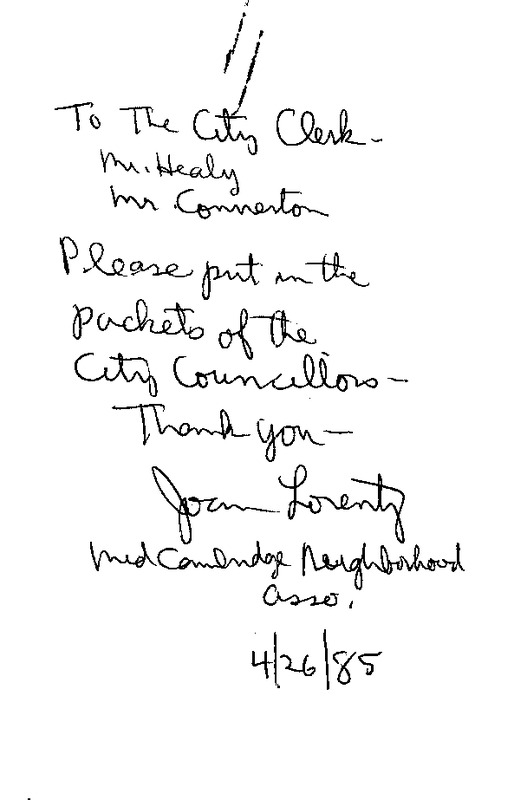 To The City Clerk-
Mr. Healy
Mr Connerton
Please put in the
packets of the
City Councillors-
Thank you-
Joan Lorentz
Mid Cambridge Neighborhood
Asso.
4/26/85